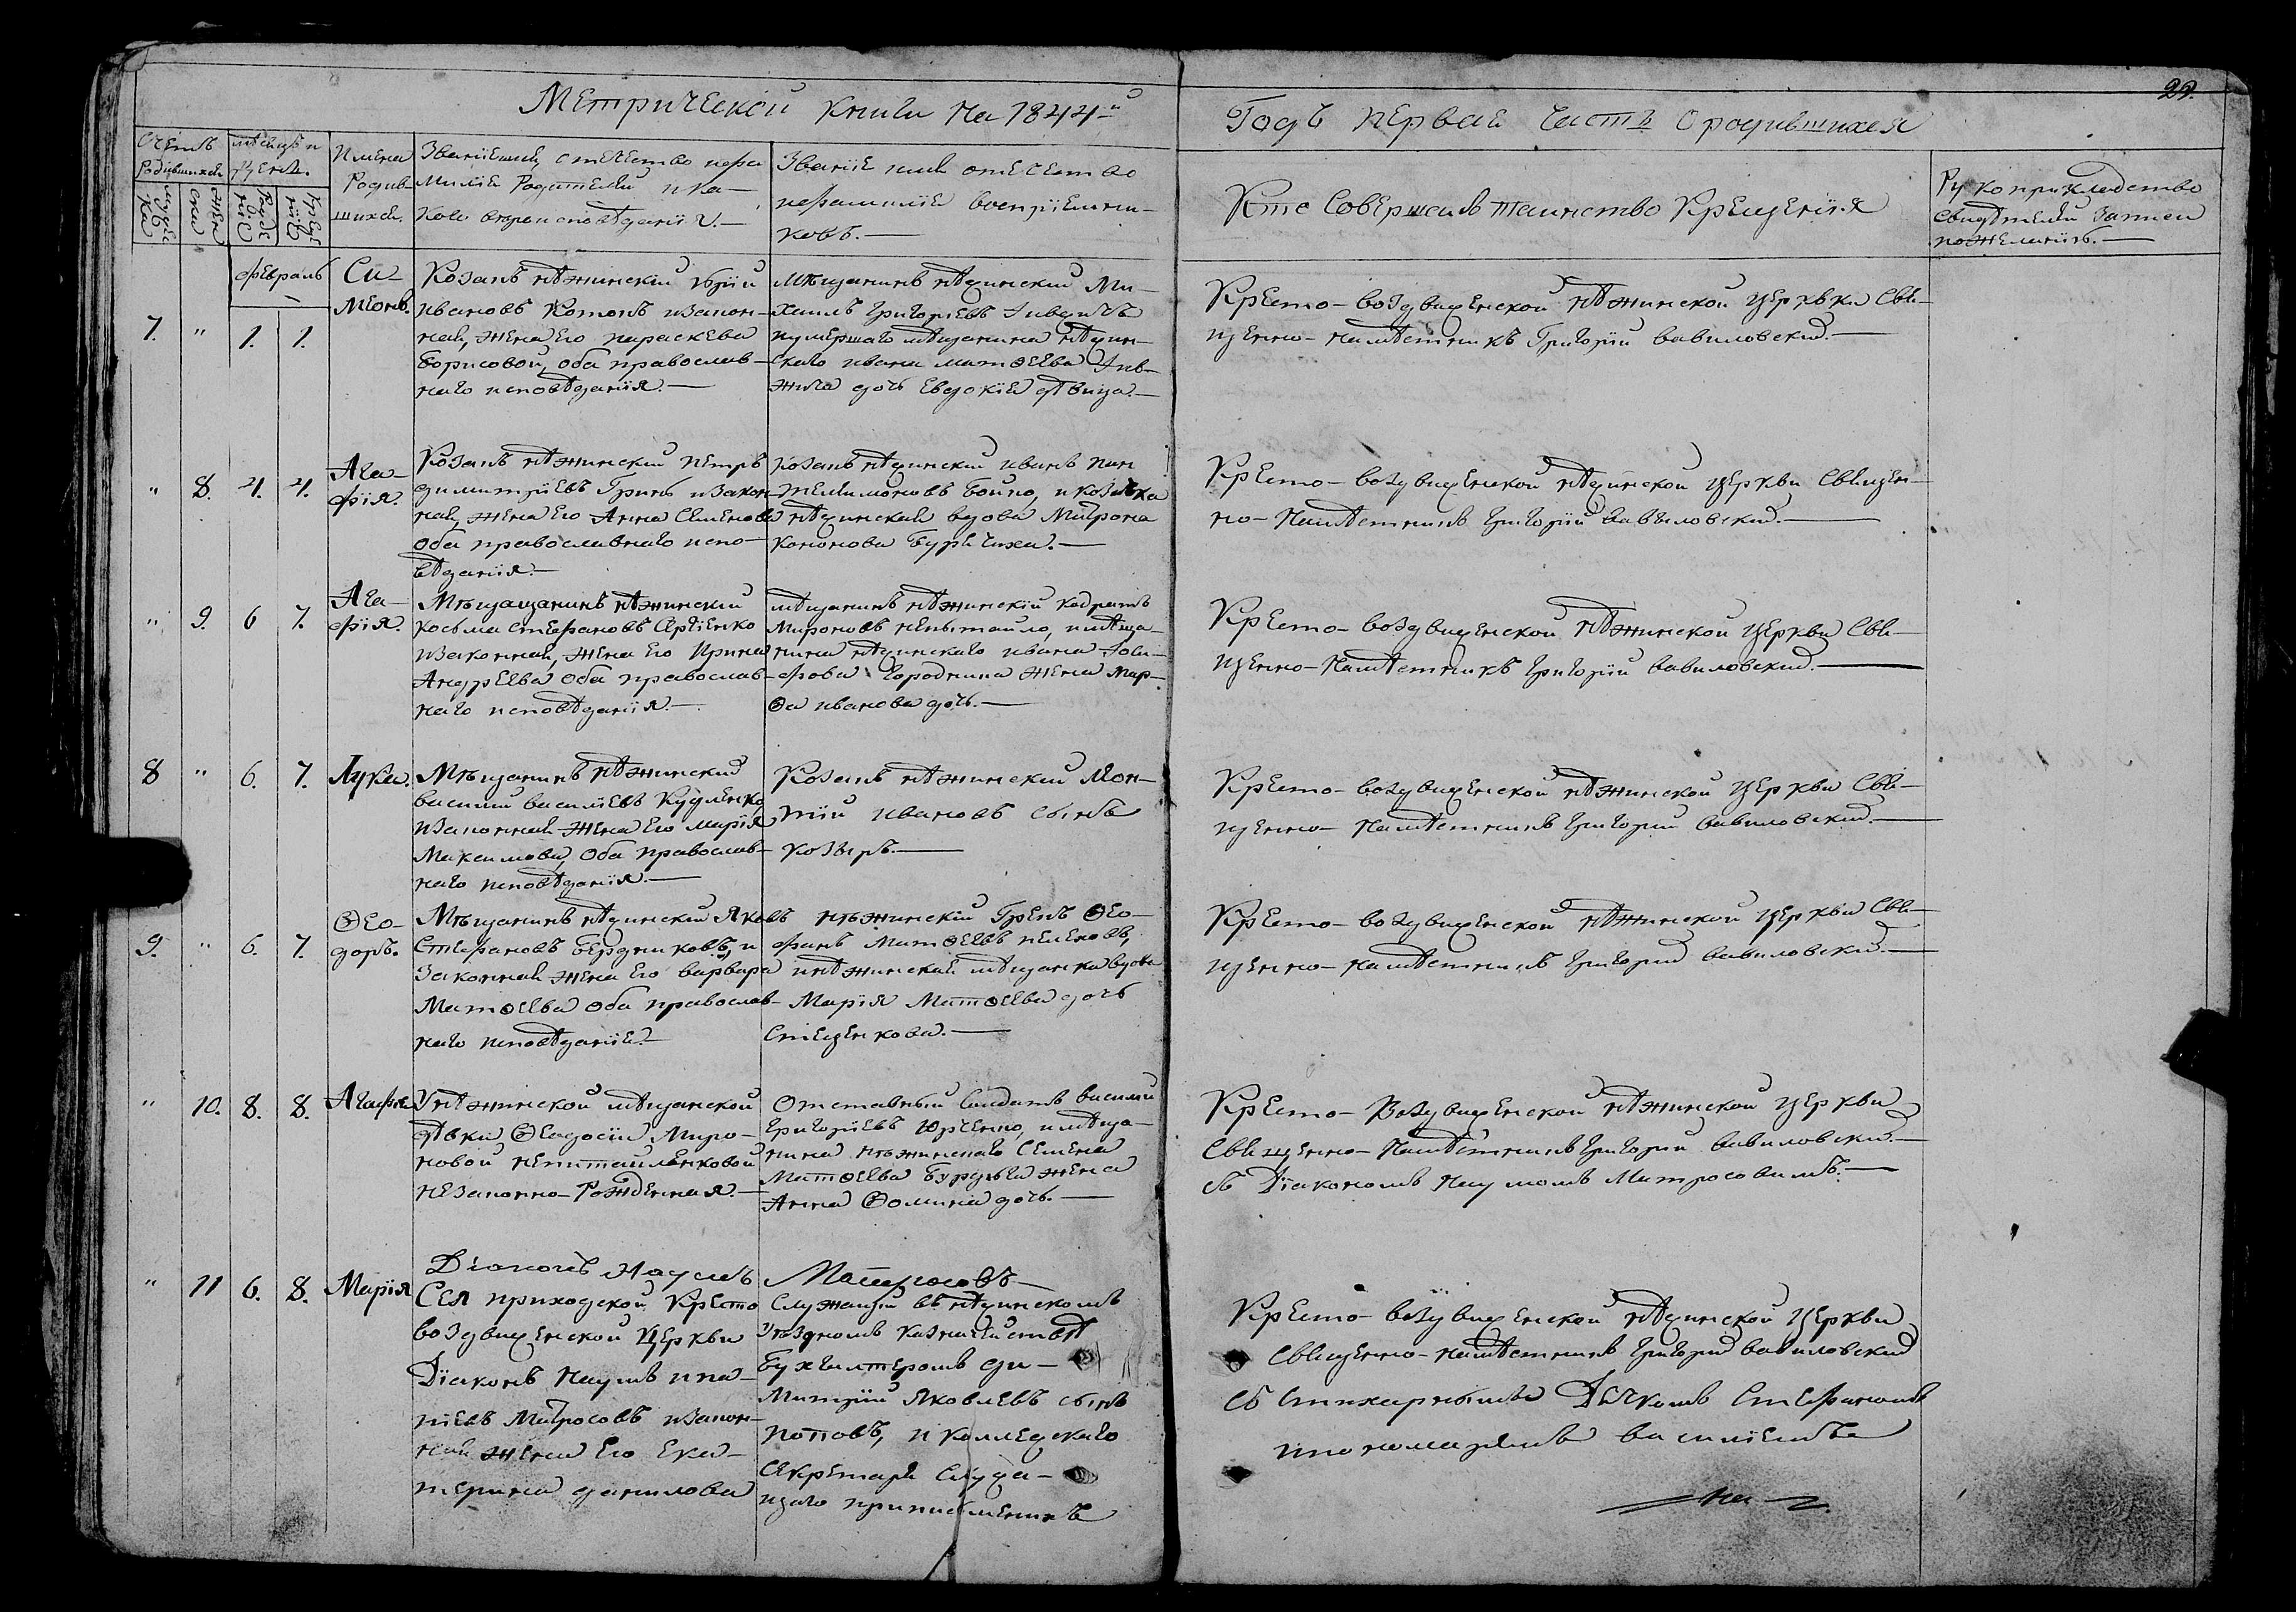 29.
Метрической Книги На 1844-й
Годъ первая Часть О родившихся
Счетъ Родившихся
мужеска
женска
Месяцъ и День.
Рожденiе
Крещенiе
Имена
Родив-
шихся.
Званiе имя, отечество и фа
милiя Родителей и ка-
кого вероисповѣданiя.—
Званiе имя отечество
и фамилiя воспрiемни-
ковъ.—
Кто Совершалъ таинство Крещенiя
Рукоприкладство
свидѣтелей Записи
по желанiю.—
Февраль
7. " 1. 1.
Си-
меонъ.
Козакъ нѣжинскiй Юрiй
Ивановъ Котонъ и закон-
ная, жена его Параскева
Борисовой, оба православ-
наго исповѣданiя.—
Мѣщанинъ нѣжинскiй Ми-
хаилъ Григорiевъ
и умершаго мѣщанина нѣжин-
скаго Ивана Матѳеева
дочь Евдокiя дѣвица.—
Кресто-воздвиженской нѣжинской церькви Свя-
щенно-намѣстникъ Григорiй Вавиловский.—
" 8. 4. 4.
Ага-
фiя.
Козакъ нѣжинский Петръ
Димитрiевъ Гринь и закон-
ная, жена Его Анна Сименова
Оба православнаго испо-
вѣданiя.—
Козакъ нѣжинский Иванъ Пан
телимоновъ Бойко, и козачка
нѣжинская вдова Мотрона
Кононова Бурлчиха.—
Кресто-воздвиженской нѣжинской церкви Священ-
но-Намѣстникъ Григорiй Вавиловский.—
" 9. 6 7.
Ага-
фiя.
Мѣщацанинъ нѣжинскiй
Косьма Стефановъ Сергiенко
и законная, жена Его Ирина
Андреева Оба православ-
наго исповѣданiя.—
мѣщанинъ нѣжинскiй Кодратъ
Мироновъ Непытайло, и мѣща-
нина нѣжинскаго Ивана Iоси-
фова Городнина жена Мар-
ѳа Иванова дочь.—
Кресто-воздвиженской нѣжинской церкви Свя-
щенно-Намѣстникъ Григорiй Вавиловский.—
8 " 6. 7. Лука.
Мѣщанинъ нѣжинский
Василий Василiевъ Кудленко
и законная жена Его Марiя
Максимова, Оба православ-
наго исповѣданiя.—
Козакъ нѣжинский Мон-
тiй Ивановъ сынъ
Козыръ.—
Кресто-воздвиженской нѣжинской церкви Свя-
щенно-Намѣстникъ Григорий Вавиловский.—
9. " 6. 7.
Ѳео-
доръ.
Мѣщанинъ нѣжинский Яковъ
Стефановъ Бердниковъ, и
законная жена Его Варвара
Матѳеева Оба православ-
наго исповѣданiя.—
нѣжинский Грекъ Ѳео-
фанъ Матѳеевъ Пеленовъ,
и нѣжинская мѣщанка вдова
Марiя Матѳеева дочь
Стеценкова.—
Кресто-воздвиженской нѣжинской церкви Свя-
щенно-намѣстникъ Григорий Вавиловский.—
" 10. 8. 8. Агафiя
У нѣжинской мѣщанской
дѣвки Ѳеодосiи Миро-
новой Непитайленковой
незаконно-Рожденная.—
Отставный Солдатъ Василий
Григорiевъ Юрченко, и мѣща-
нина нѣжинскаго Семена
Матѳеева жена
Анна Ѳомина дочь.—
Кресто-Воздвиженской нѣжинской церкви
Священно-Намѣстникъ Григорий Вавиловский—
съ Дiакономъ Наумомъ Матросовимъ.—
Дiаконъ Наумъ Матросовъ
" 11 6. 8. Марiя
Сея приходской Кресто
воздвиженской Церкви
Дiаконъ Наумъ Ипа-
тiевъ Матросовъ и закон-
ная жена Его Ека-
терина Данилова
Служащiй въ нѣжинскомъ
Уѣздномъ Казначействѣ
Бухгалтеромъ Ди-
митрiй Яковлевъ сынъ
Поповъ, и коллежскаго
секретаря Служа-
щаго при
Кресто-воздвиженской нѣжинской Церкви
Священно-намѣстникъ Григорий Вавиловский
съ стихарнымъ Дячкомъ Стефаномъ
и пономаремъ